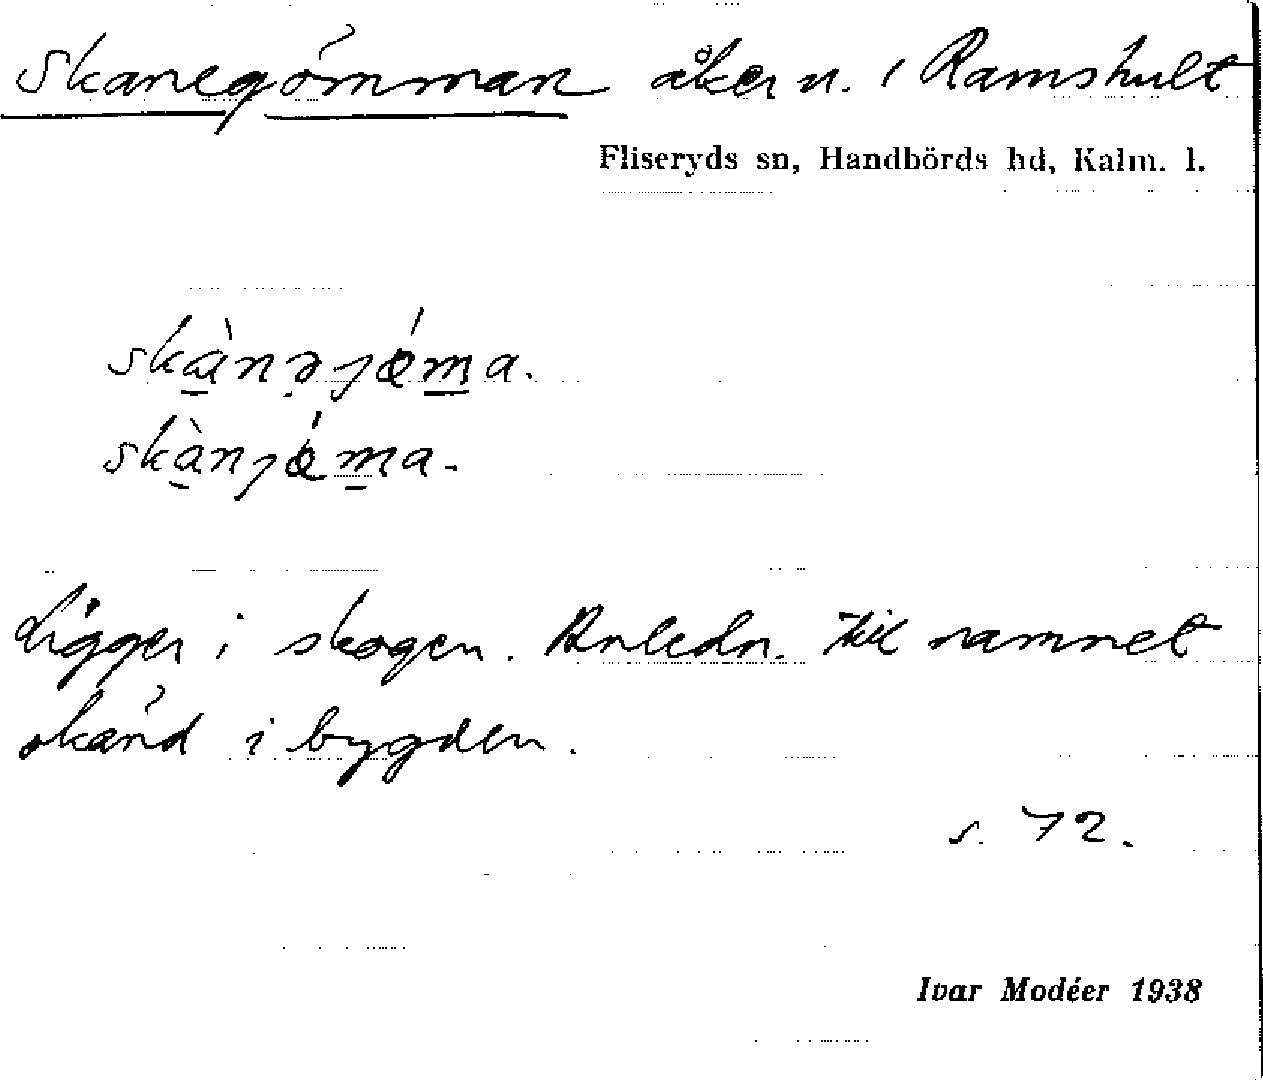 Skanegömman åker n. i Ramshult
Fliseryds sn, Handbörds hd, Kalm. l.
skànəȷǿma.
skànȷǿma.
Ligger i skogen. Anledn. till namnet
okänd i bygden.
s. 72.
Ivar Modéer 1938